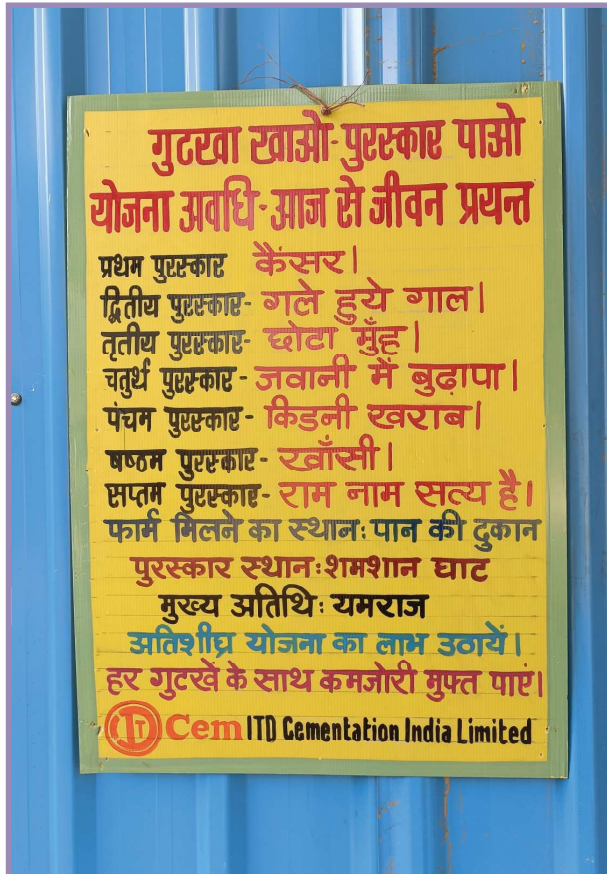 गुटखा खाओ-पुरस्कार पाओ
योजना अवधि-आज से जीवन प्रयन्त
प्रथम पुरस्कार कैंसर।
द्वितीय पुरस्कार- गले हुये गाल।
तृतीय पुरस्कार- छोटा मुँह।
चतुर्थ पुरस्कार- जवानी में बुढ़ापा।
पंचम पुरस्कार- किडनी खराब।
षष्ठम पुरस्कार- खाँसी।
सप्तम पुरस्कार- राम नाम सत्य है।
फार्म मिलने का स्थान: पान की दुकान
पुरस्कार स्थान: शमशान घाट
मुख्य अतिथि: यमराज
अतिशीघ्र योजना का लाभ उठायें।
हर गुटखें के साथ कमजोरी मुफ्त पाएं।
ITD Cem ITD Cementation India Limited